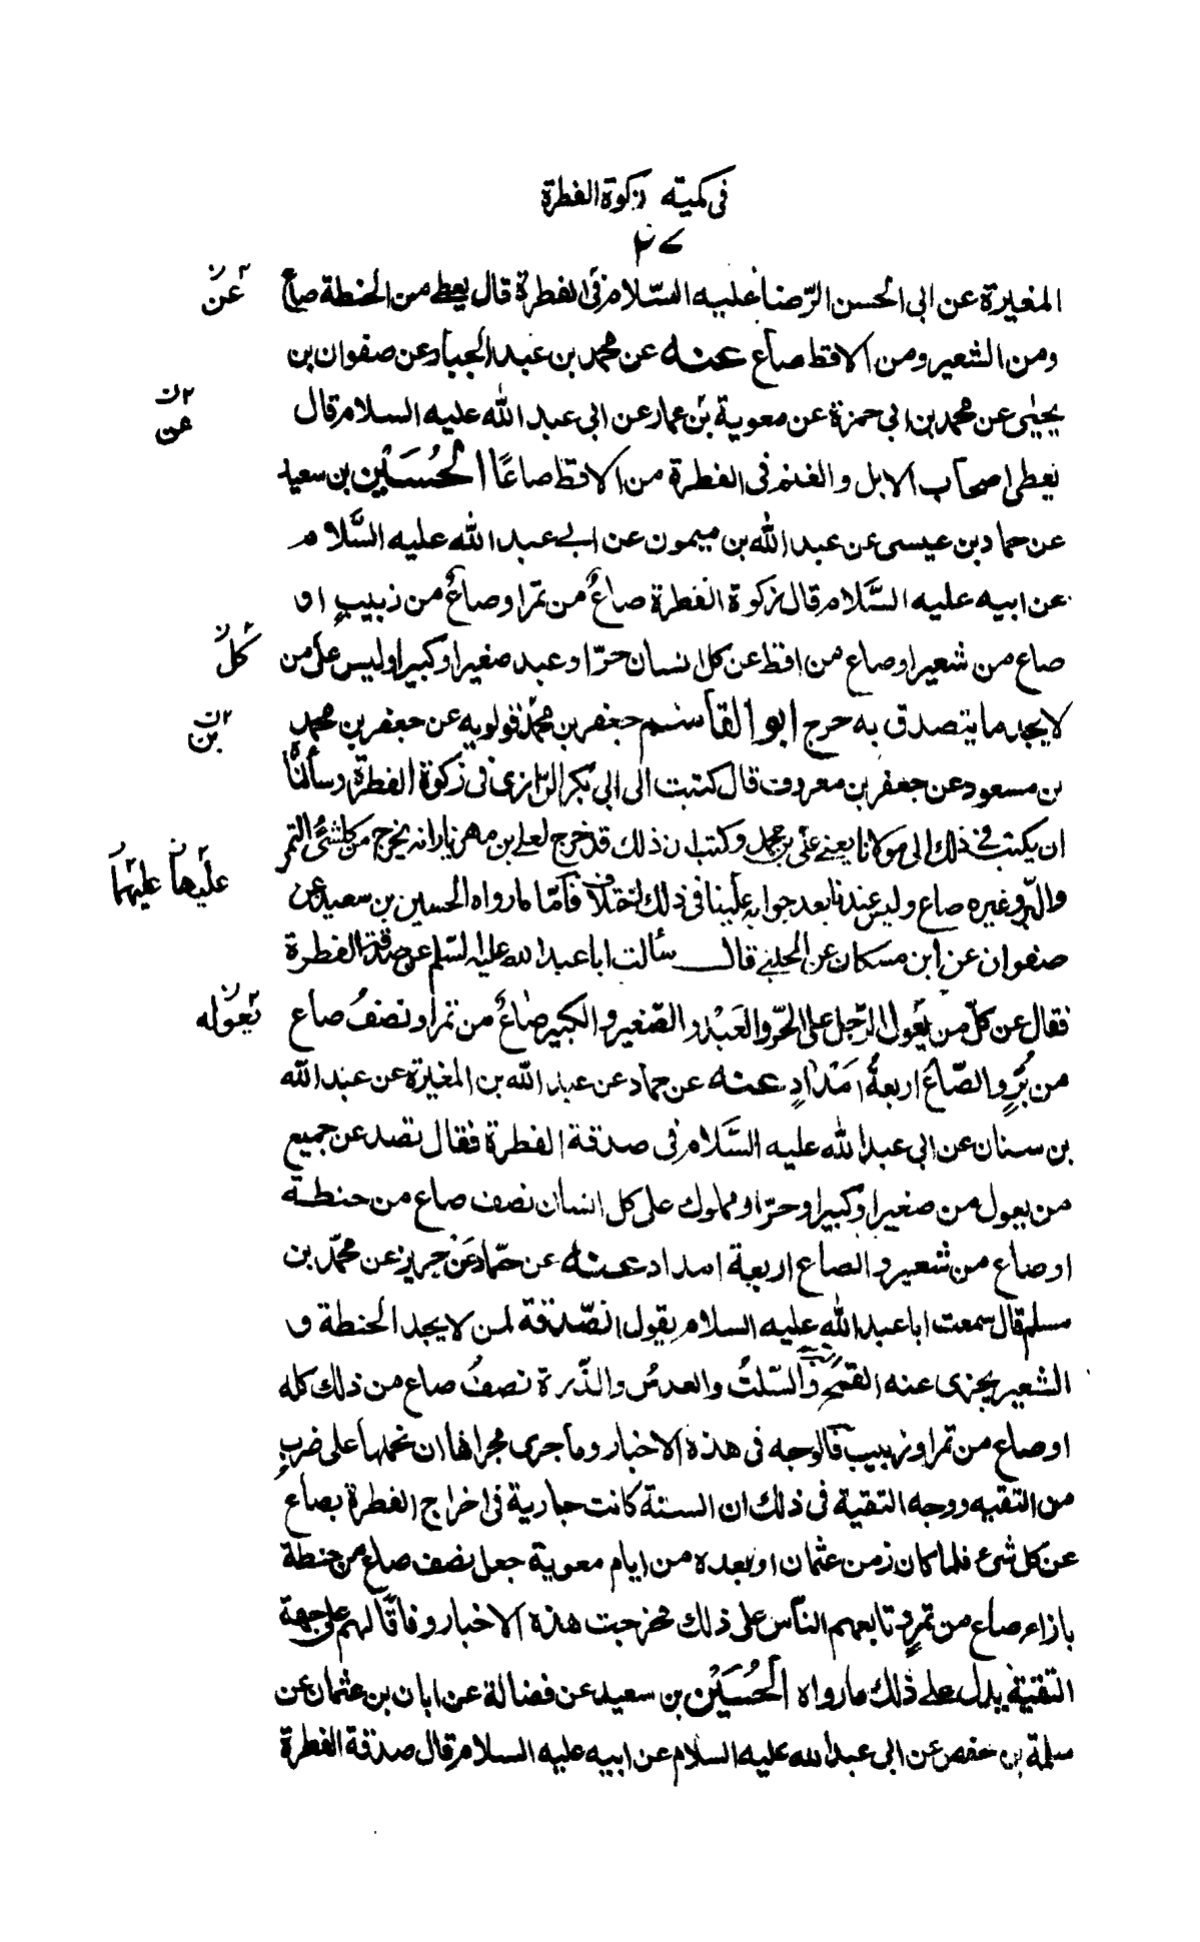 فى كمية زكوة الفطرة
٢٧
المغيرة عن ابى الحسن الرّضا عليه السّلام فى الفطرة قال يعطى من الحنطة صاع
عن
ومن الشعير ومن الاقط صاع عنه عن محمد بن عبد الجبار عن صفوان بن
يحيى عن محمد بن ابى حمزة عن معوية بن عمار عن ابى عبد الله عليه السلام قال
عن
يعطى اصحاب الابل والغنم فى الفطرة من الاقط صاعًا الحُسَيْن بن سعيد
عن حماد بن عيسى عن عبد الله بن ميمون عن ابى عبد الله عليه السَّلام
عن ابيه عليه السَّلام قال زكوة الفطرة صاعٌ من تمر او صاعٌ من زبيبٍ او
صاع من شعير او صاع من اقط عن كل انسان حرّ او عبد صغير او كبير وليس على من
كلّ
لا يجد ما يتصدق به حرج ابو القاسم جعفر بن محمّد قولويه عن جعفر بن محمد
بن
بن مسعود عن جعفر بن معروف قال كتبت الى ابى بكر الرّازى فى زكوة الفطرة وسألناه
ان يكتب فى ذلك الى مولانا يعنى علىّ بن محمد وكتب ان ذلك قد خرج لعلى بن مهزيار انه يخرج من كل شئ التمر
والبرّ وغيره صاع وليس عندنا بعد جوابه علينا فى ذلك اختلاف فأمّا ما رواه الحسين بن سعيد عن
عليها عليهما
صفوان عن ابن مسكان عن الحلبى قال سألت ابا عبد الله عليه السّلم عن صدقة الفطرة
فقال عن كلّ من يعول الرّجل على الحرّ والعَبْد والصّغير والكبير صَاعٌ من تمر او نصفُ صاع
يَعوله
من بُرٍّ والصّاعُ اربعةُ اَمْدادٍ عنه عن حماد عن عبد الله بن المغيرة عن عبد الله
بن سنان عن ابى عبد الله عليه السَّلام فى صدقة الفطرة فقال تصدق عن جميع
من يعول من صغير او كبير او حرّ او مملوك على كل انسان نصف صاع من حنطة
او صاع من شعير والصاع اربعة امداد عنه عن حمّاد عَن حريز عن محمّد بن
مسلم قال سمعت ابا عبد الله عليه السلام يقول الصّدقة لمن لا يجد الحنطة و
الشعير يجزى عنه القمحُ والسّلتُ والعدسُ والذّرة نصفُ صاع من ذلك كله
او صاع من تمر او زبيب فالوجه فى هذه الاخبار وما جرى مجراها ان نحملها على ضربٍ
من التقيه ووجه التقية فى ذلك ان السنة كانت جارية فى اخراج الفطرة بصاع
عن كل شئ فلما كان زمن عثمان او بعده من ايام معوية جعل نصف صاع من حنطة
بازاء صاع من تمرٍ وتابعهم النّاس على ذلك فخرجت هذه الاخبار وفاقًا لهم على جهة
التقية يدل على ذلك ما رواه الحُسَيْن بن سعيد عن فضالة عن ابان بن عثمان عن
سلمة بن حفص عن ابى عبد الله عليه السلام عن ابيه عليه السلام قال صدقة الفطرة